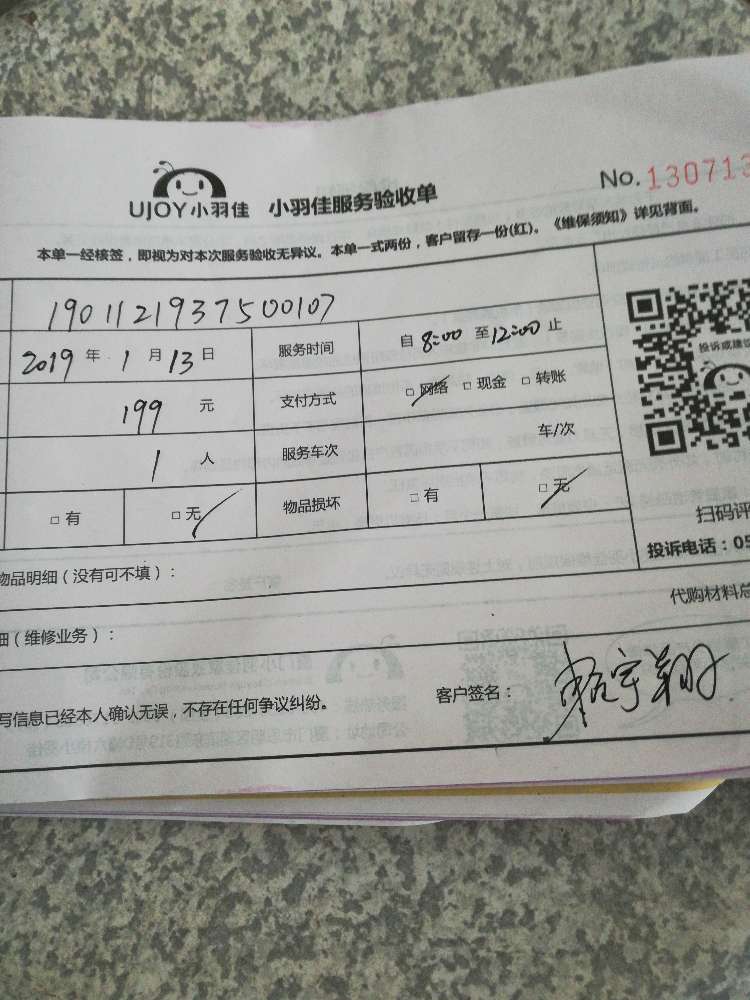 UJOY小羽佳 小羽佳服务验收单 No.130713
本单一经核签，即视为对本次服务验收无异议。本单一式两份，客户留存一份(红)。《维保须知》详见背面。
1901121937500107
2019 年 1 月 13 日 服务时间 自 8:00 至 12:00 止
199 元 支付方式 □ 网络 □ 现金 □ 转账
投诉或建议
1 人 服务车次 车/次
□ 有 □ 无 物品损坏 □ 有 □ 无
扫码评
投诉电话：05
物品明细（没有可不填）：
代购材料总
细（维修业务）：
写信息已经本人确认无误，不存在任何争议纠纷。 客户签名：